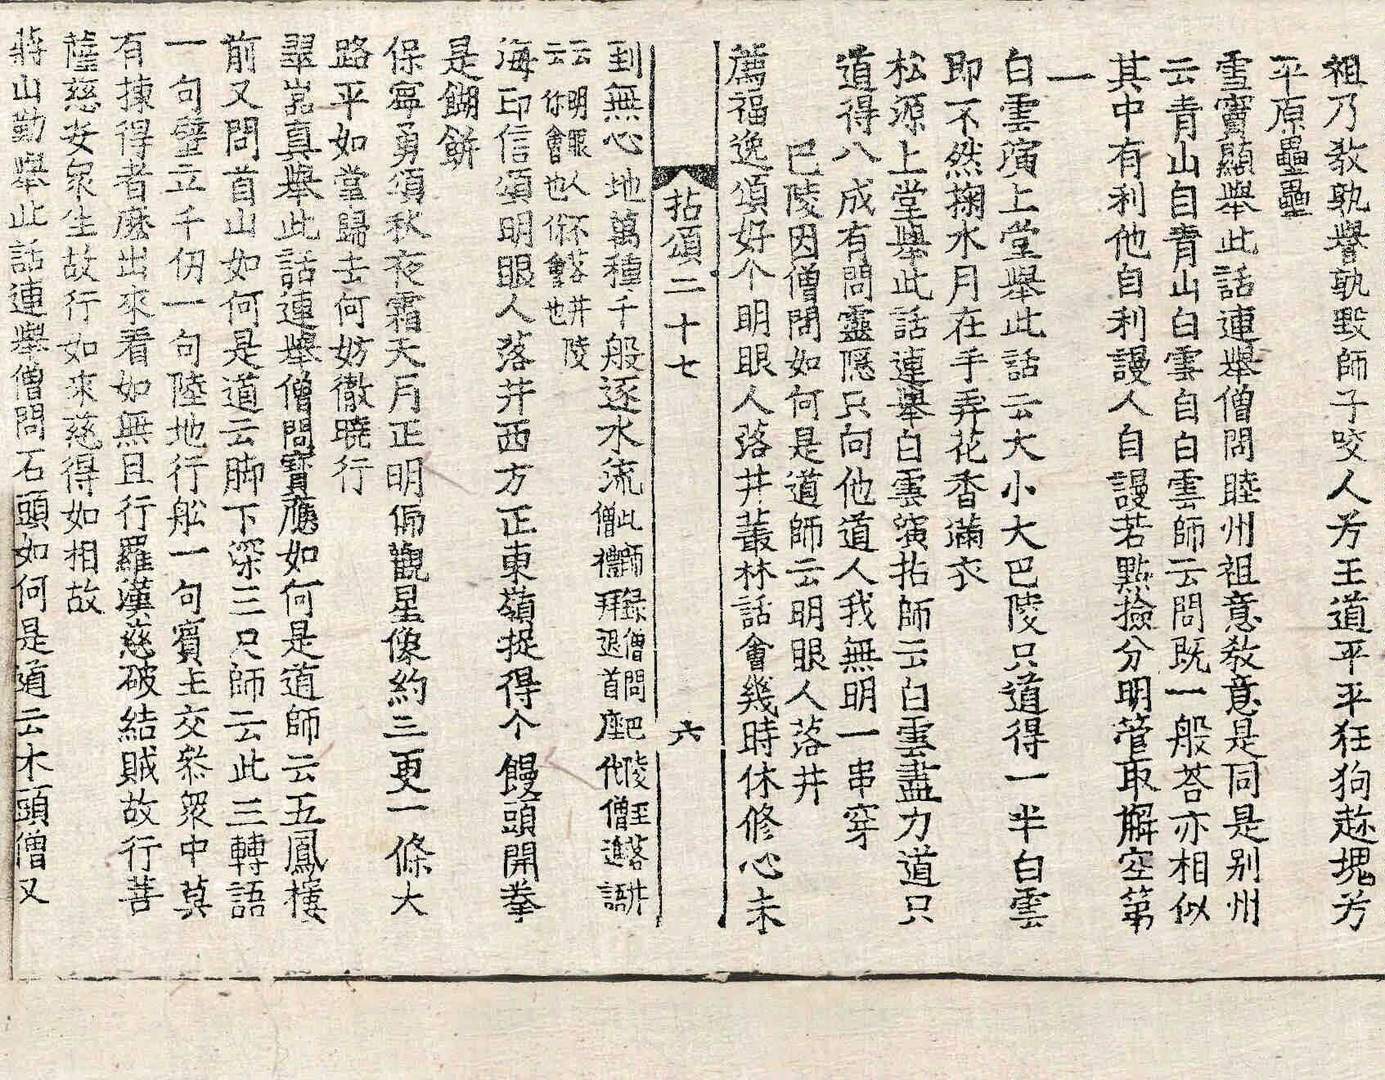 祖乃教孰譽孰毀師子咬人芳王道平平狂狗趂塊芳
平原壘壘
雪竇顯舉此話連舉僧問睦州祖意教意是同是別州
云青山自青山白雲自白雲師云問既一般荅亦相似
其中有利他自利謾人自謾若點撿分明管取解空第
一
白雲演上堂舉此話云大小大巴陵只道得一半白雲
即不然掬水月在手弄花香滿衣
松源上堂舉此話連舉白雲演拈師云白雲盡力道只
道得八成有問靈隱只向他道人我無明一串穿
巴陵因僧問如何是道師云明眼人落井
薦福逸頌好个明眼人落井叢林話會幾時休修心未
拈頌二十七 六
到無心地萬種千般逐水流此師録僧問巴陵至落井
僧禮拜退首座代僧進語
云明眼人不落井陵
云你會也你會也
海印信頌明眼人落井西方正東嶺捉得个饅頭開拳
是餬餅
保寧勇頌秋夜霜天月正明俻觀星像約三更一條大
路平如掌歸去何妨徹曉行
翠嵓真舉此話連舉僧問寳應如何是道師云五鳳樓
前又問首山如何是道云脚下深三尺師云此三轉語
一句壁立千仞一句陸地行舩一句賓主交叅衆中莫
有揀得者麽出來看如無且行羅漢慈破結賊故行菩
薩慈安衆生故行如來慈得如相故
蔣山勤舉此話連舉僧問石頭如何是道云木頭僧又